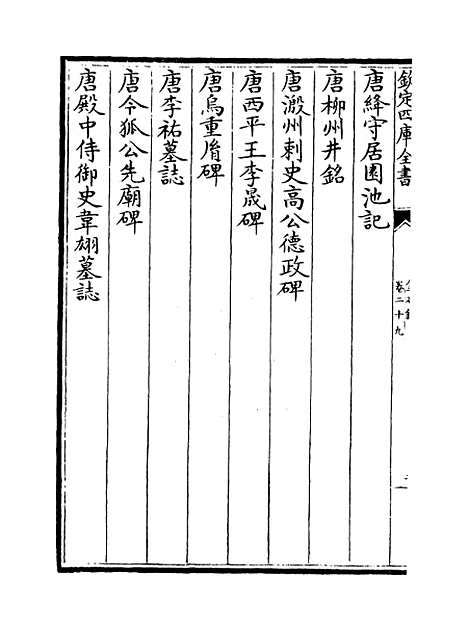 欽定四庫全書
卷二十九
唐絳守居園池記
唐柳州井銘
唐澱州刺史高公德政碑
唐西平王李晟碑
唐烏重胤碑
唐李祐墓誌
唐令狐公先廟碑
唐殿中侍御史韋翃墓誌